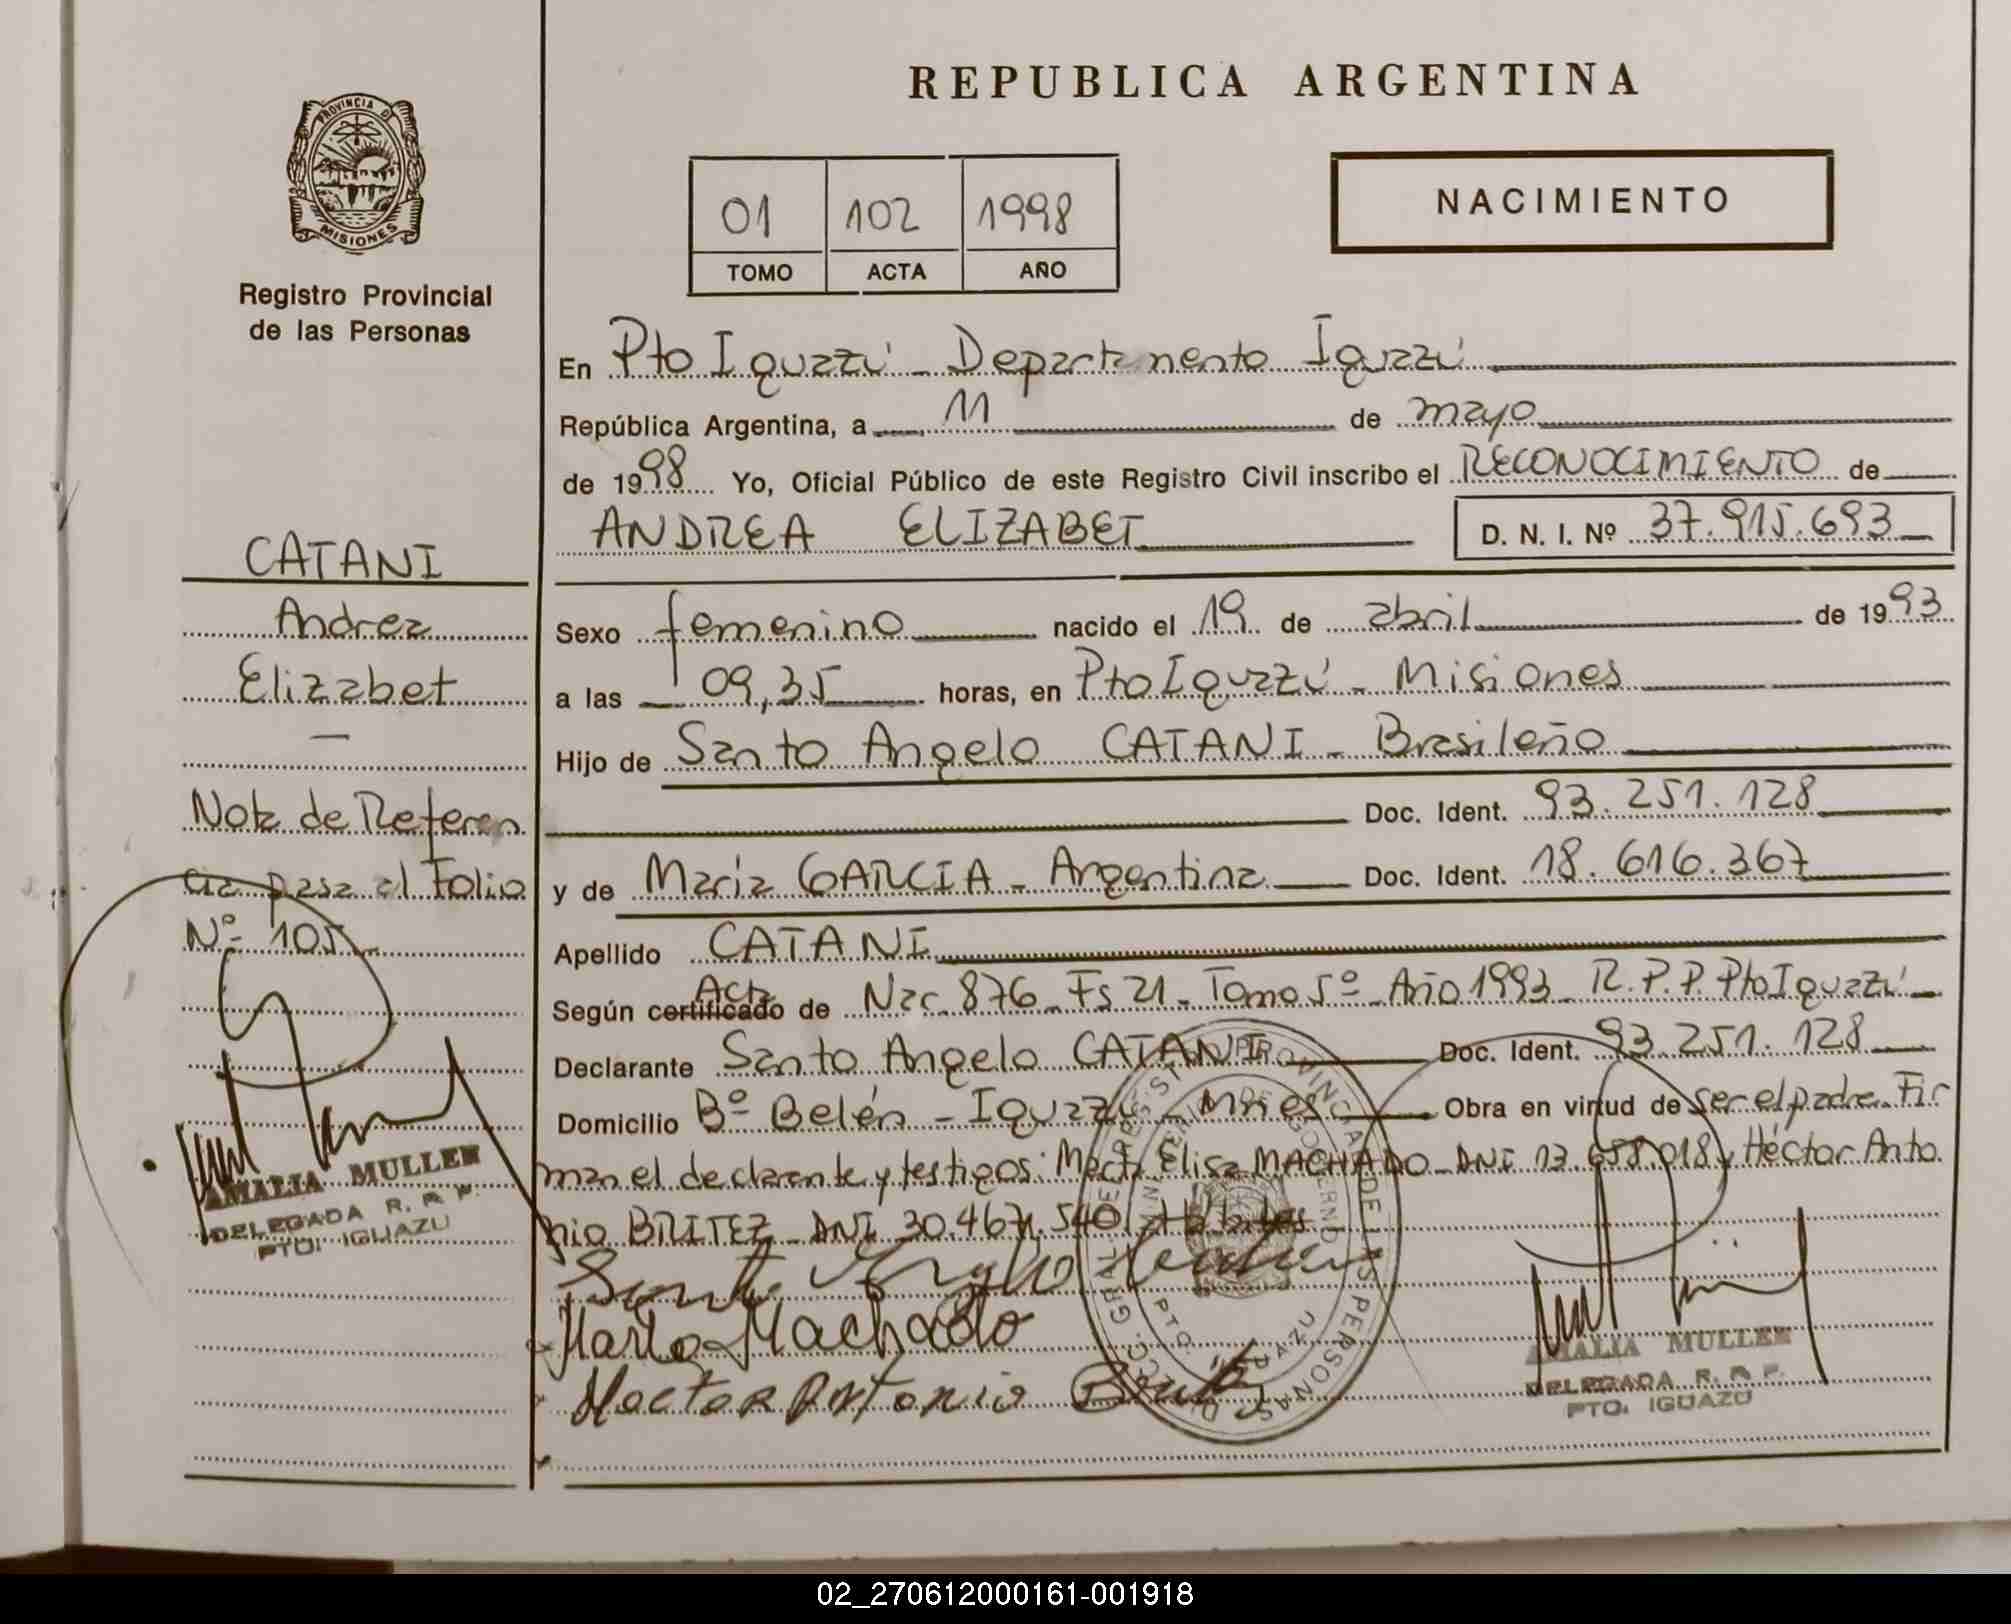 REPUBLICA ARGENTINA
PROVINCIA D
MISIONES
Registro Provincial
de las Personas
01 102 1998
TOMO ACTA AÑO
NACIMIENTO
En Pto Iguazú - Departamento Iguazú
República Argentina, a 11 de mayo
de 1998 Yo, Oficial Público de este Registro Civil inscribo el RECONOCIMIENTO de
ANDREA ELIZABET D. N. I. Nº 37.915.693
Sexo femenino nacido el 19 de abril de 1993
a las 09,35 horas, en Pto Iguazú - Misiones
Hijo de Santo Angelo CATANI - Brasileño
Doc. Ident. 93.251.128
y de María GARCIA - Argentina Doc. Ident. 18.616.367
Apellido CATANI
Según certificado Acta de Nac. 876 - Fs 21 - Tomo 5º - Año 1993 - R.P.P. Pto Iguazú
Declarante Santo Angelo CATANI Doc. Ident. 93.251.128
Domicilio Bº Belén - Iguazú - Mnes Obra en virtud de ser el padre. Fir
man el declarante y testigos: Elisa MACHADO - DNI 13.658.018 y Héctor Anto
nio BRITEZ - DNI 30.467.540
Machado
Hector Antonio
AMALIA MULLER
DELEGADA R. P. P.
PTO. IGUAZU
CATANI
Andrea
Elizabet
—
Nota de Referen
cia pasa al Folio
Nº 105
AMALIA MULLER
DELEGADA R. P. P.
PTO. IGUAZU
02_270612000161-001918